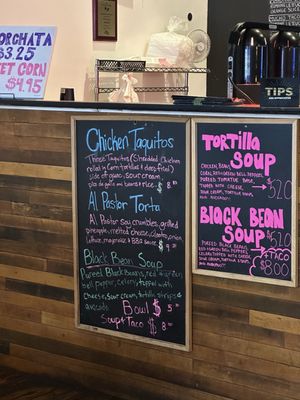 ORCHATA
$3.25
ET CORN
$4.95
TIPS
Chicken Taquitos
Three Taquitos (Shredded Chicken
rolled in Corn tortillas & deep fried)
side of guac, sour cream,
pico de gallo and beans & rice. $8
Al Pastor Torta
Al Pastor soy crumbles, grilled
pineapple, melted cheese, cilantro, onion
lettuce, mayo & BBQ sauce $9
Black Bean Soup
Pureed Black beans, red & green
bell pepper, celery, topped with
cheese, sour cream, tortilla strips &
avocado.
Bowl $5
Soup & Taco $8
TORTILLA
SOUP
CHICKEN, BEANS,
CORN, RED & GREEN BELL PEPPERS,
PUREED TOMATOE BASE
TOPPED WITH CHEESE,
SOUR CREAM, TORTILLA STRIPS
AND AVOCADO
$5.20
BLACK BEAN
SOUP
$5.10
PUREED BLACK BEANS,
RED & GREEN BELL PEPPERS,
CELERY & TOPPED WITH
CHEESE, SOUR
CREAM, TORTILLA STRIPS,
AND AVOCADO
+ TACO
$8.00